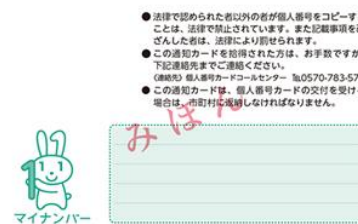 ●法律で認められた者以外の者が個人番号をコピーす
ことは、法律で禁止されています。また記載事項を
ざんした者は、法律により罰せられます。
●この通知カードを拾得された方は、お手数ですが
下記連絡先までご連絡ください。
(連絡先) 個人番号カードコールセンター ℡0570-783-57
●この通知カードは、個人番号カードの交付を受け
場合は、市町村に返納しなければなりません。
みほん
1
マイナンバー